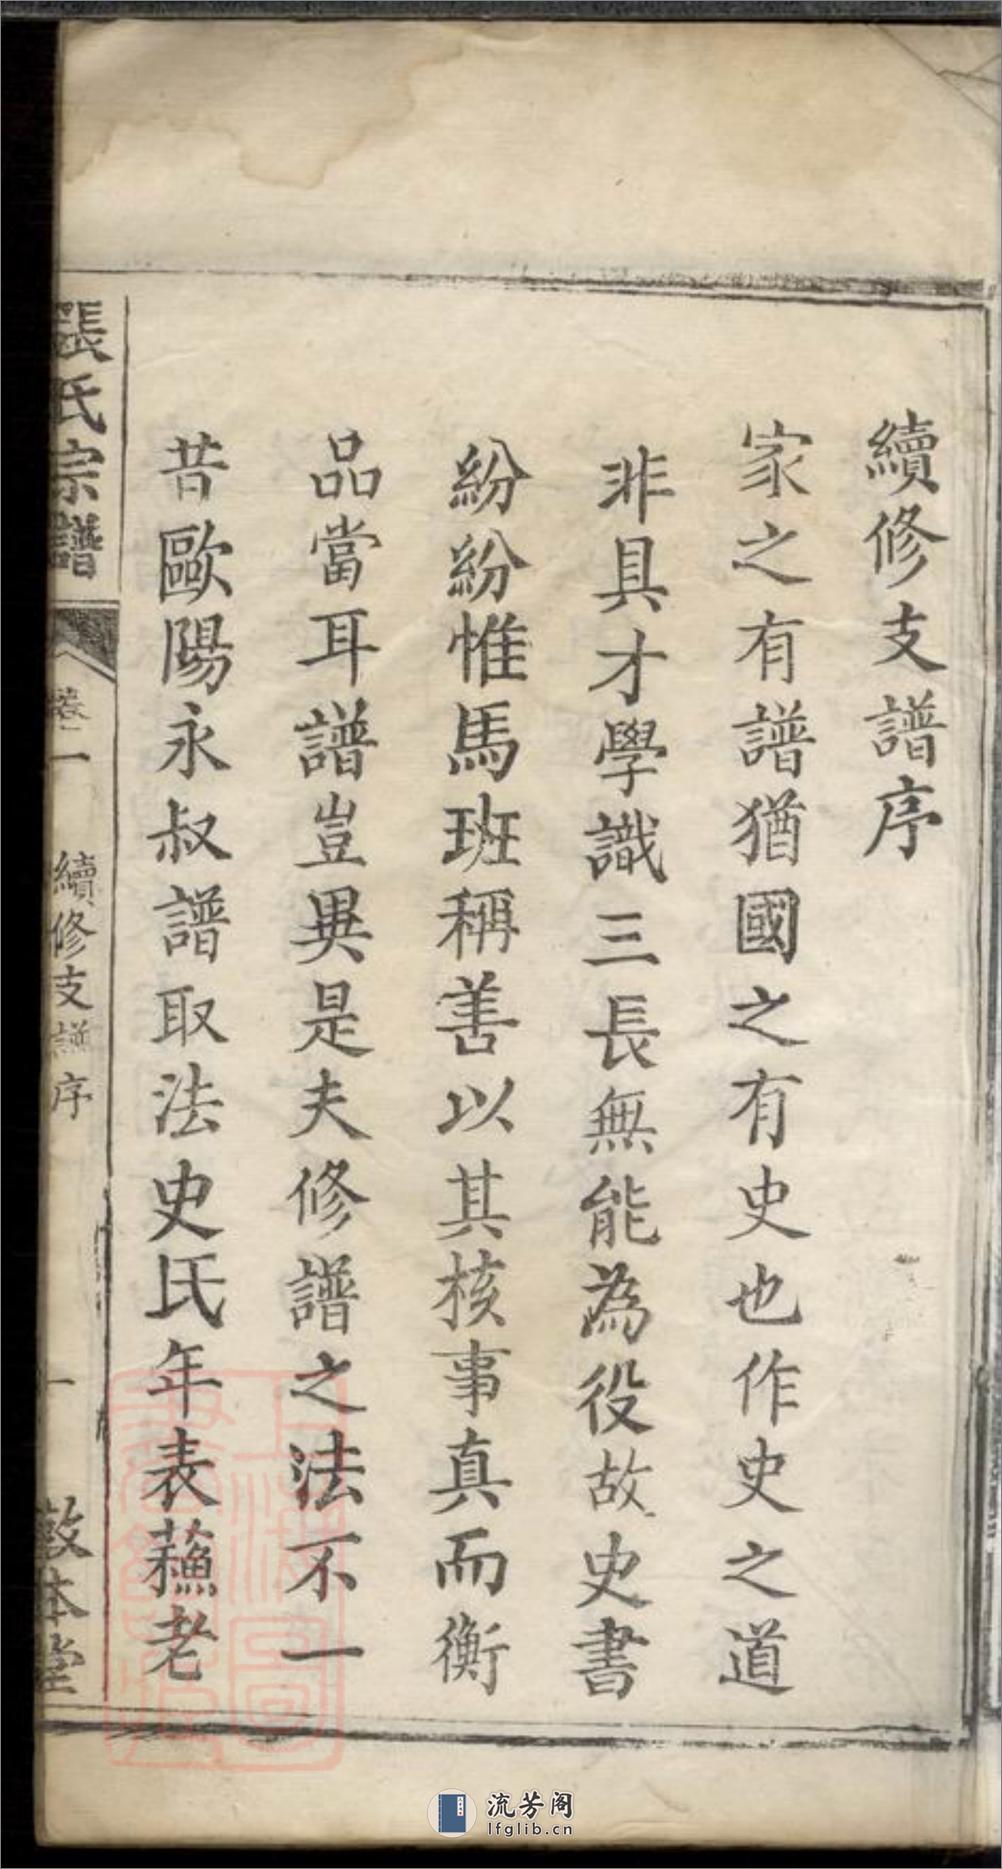 續修支譜序
家之有譜猶國之有史也作史之道
非具才學識三長無能為役故史書
紛紛惟馬班稱善以其核事真而衡
品當耳譜豈異是夫修譜之法不一
昔歐陽永叔譜取法史氏年表蘓老
張氏宗譜
卷二
續修支譜序
一
敦本堂
上海圖書館藏
流芳阁
lfglib.cn